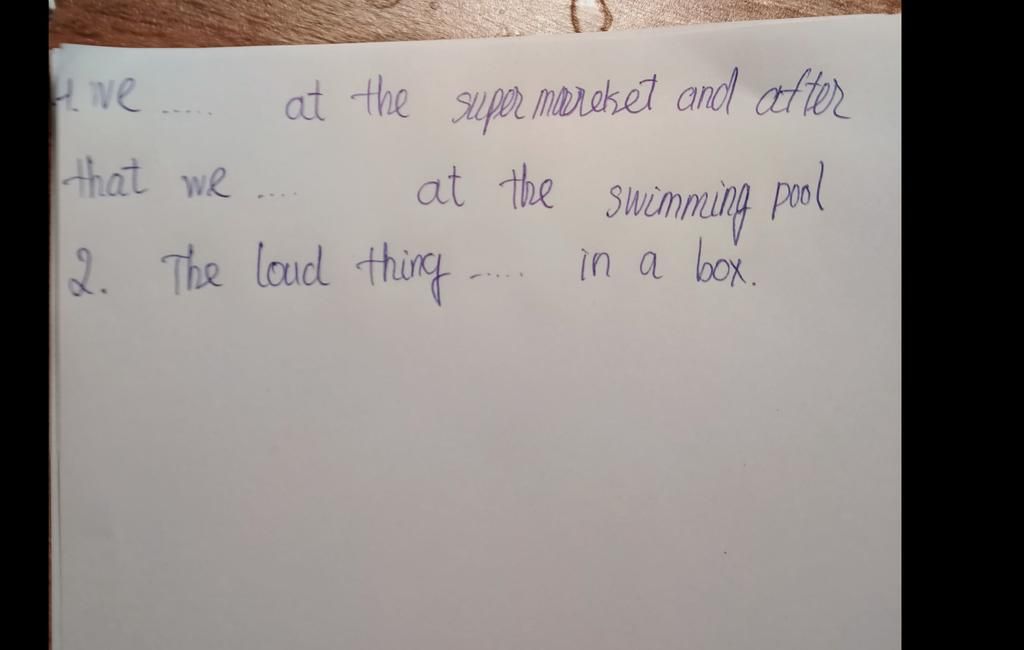 1. we ..... at the supermareket and after
that we .... at the swimming pool
2. The loud thing ..... in a box.